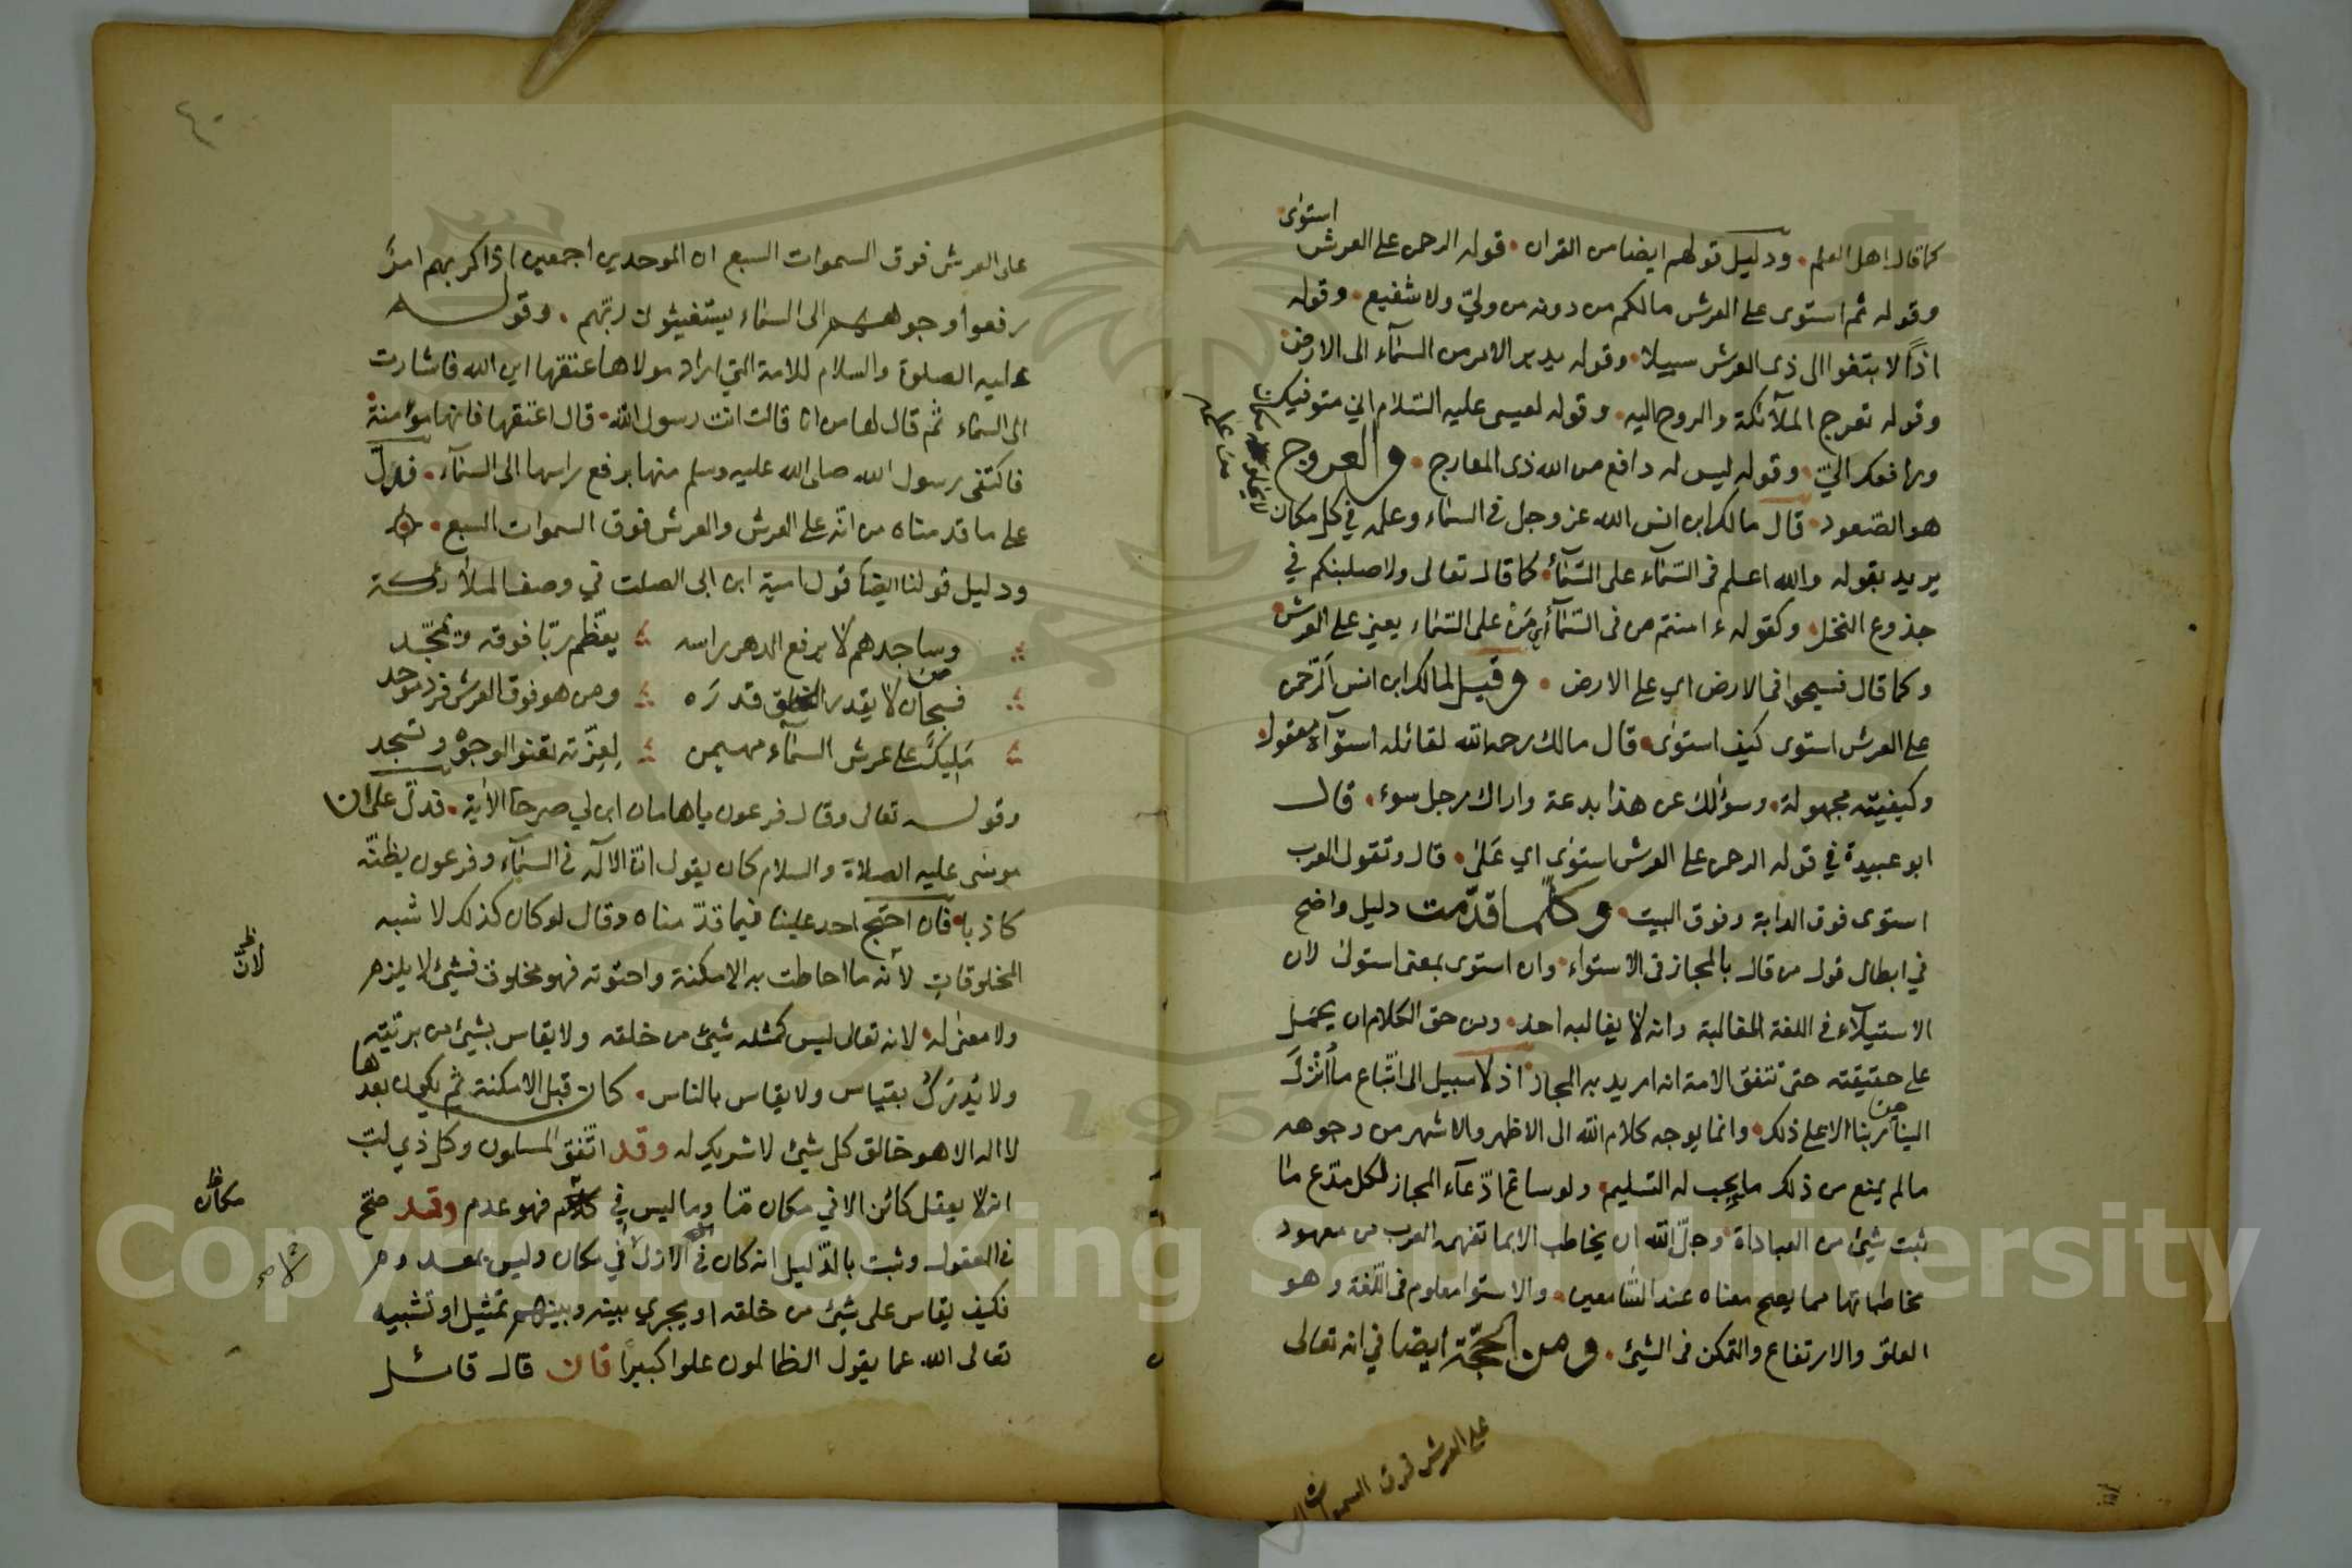 استوى
كما قال اهل العلم. ودليل قولهم ايضا من القران. قوله الرحمن على العرش
وقوله ثم استوى على العرش مالكم من دونه من وليّ ولا شفيع. وقوله
اذاً لابتغوا الى ذى العرش سبيلا. وقوله يدبر الامر من السمآء الى الارض.
وقوله تعرج الملآئكة والروح اليه. وقوله لعيسى عليه السّلام اني متوفيك
ورافعك اليّ. وقوله ليس له دافع من الله ذى المعارج. والعروج
هو الصّعود. قال مالك ابن انس الله عز وجل فى السمآء وعلمه في كل مكان
لا يخلو مكان
من علمه
يريد بقوله والله اعلم فى السّمآء على السّمآء. كما قال تعالى ولاصلبنكم في
جذوع النخل. وكقوله ءامنتم من فى السّمآء اي مَنْ على السّمآء يعني على العرش.
وكما قال فسيحوا فى الارض اي على الارض. وقيل لمالك ابن انس الرّحمن
على العرش استوى كيف استوى. قال مالك رحمه الله لقائله استوآءه معقول.
وكيفيته مجهولة. وسؤالك عن هذا بدعة واراك رجل سوء. قال
ابو عبيدة في قوله الرحمن على العرش استوى اي عَلَى. قال وتقول العرب
استوى فوق الدابة وفوق البيت. وكلّما قدّمت دليل واضح
في ابطال قول من قال بالمجاز فى الاستواء. وان استوى بمعنى استولى لان
الاستيلآء فى اللغة المغالبة وانه لا يغالبه احد. ومن حق الكلام ان يحمل
على حقيقته حتى تتفق الامة انه اريد به المجاز. اذ لا سبيل الى اتّباع ما اُنْزلَ
الينا من ربنا الا على ذلك. وانما يوجه كلام الله الى الاظهر والاشهر من وجوهه
مالم يمنع من ذلك ما يجب له التسليم. ولو ساغ ادّعآء المجاز لكل مدّع ما
ثبت شيئ من العباداة. وجلّ الله ان يخاطب الا بما تفهمه العرب من معهود
مخاطباتها مما يصح معناه عند السّامعين. والاستوا معلوم فى اللّغة وهو
العلوّ والارتفاع والتمكن فى الشيئ. ومن الحجّة ايضا في انه تعالى
على العرش فوق السموات
٤٠
على العرش فوق السموات السبع ان الموحدين اجمعين اذا كربهم امرٌ
رفعوا وجوههم الى السمآء يستغيثون ربّهم. وقوله
عليه الصلوة والسلام للامة التي اراد مولاها عتقها اين الله فاشارت
الى السمآء ثم قال لها من انا قالت انت رسول الله. قال اعتقها فانها مؤمنة.
فاكتفى رسول الله صلى الله عليه وسلم منها برفع راسها الى السمآء. فدلّ
على ما قدمناه من انّه على العرش والعرش فوق السموات السبع.
ودليل قولنا ايضاً قول امية ابن ابى الصلت في وصف الملائكة
وساجدهم لا يرفع الدهر راسه يعظّم ربّا فوقه ويمجّد
فسبحان من لا يقدر الخلق قدرَه ومن هو فوق العرش فرد موحد
مَلِيكٌ على عرش السمآء مهيمن لِعِزّته تعنوا الوجوه وتسجد
وقوله تعالى وقال فرعون ياهامان ابن لي صرحا الاٰية. فدلّ على ان
موسى عليه الصلاة والسلام كان يقول انّ الالٰه فى السمآء وفرعون يظنّه
كاذبا. فان احتج احد علينا فيما قدّمناه وقال لو كان كذلك لاشبه
المخلوقاتِ لانه ما احاطت به الامكنة واحتوته فهو مخلوق فشيئ لا يلزم
لانّ
ولا معنى له. لانه تعالى ليس كمثله شيئ من خلقه ولا يقاس بشيئ من بريّته
ولا يُدْرَكُ بقياس ولا يقاس بالناس. كان قبل الامكنة ثم يكون بعدها
لا اله الا هو خالق كل شيئ لا شريك له وقد اتّفق المسلمون وكل ذي لبّ
انه لا يعقل كائن الا في مكان مّا وما ليس في فهو عدم وقد صحّ
مكان
فى العقول وثبت بالدّليل انه كان فى الازل لا في مكان وليس بمعدوم
فكيف يقاس على شيئ من خلقه او يجري بينه وبينهم تمثيل او تشبيه
تعالى الله عما يقول الظالمون علوا كبيرًا فان قال قائل
Copyright © King Saud University
1957